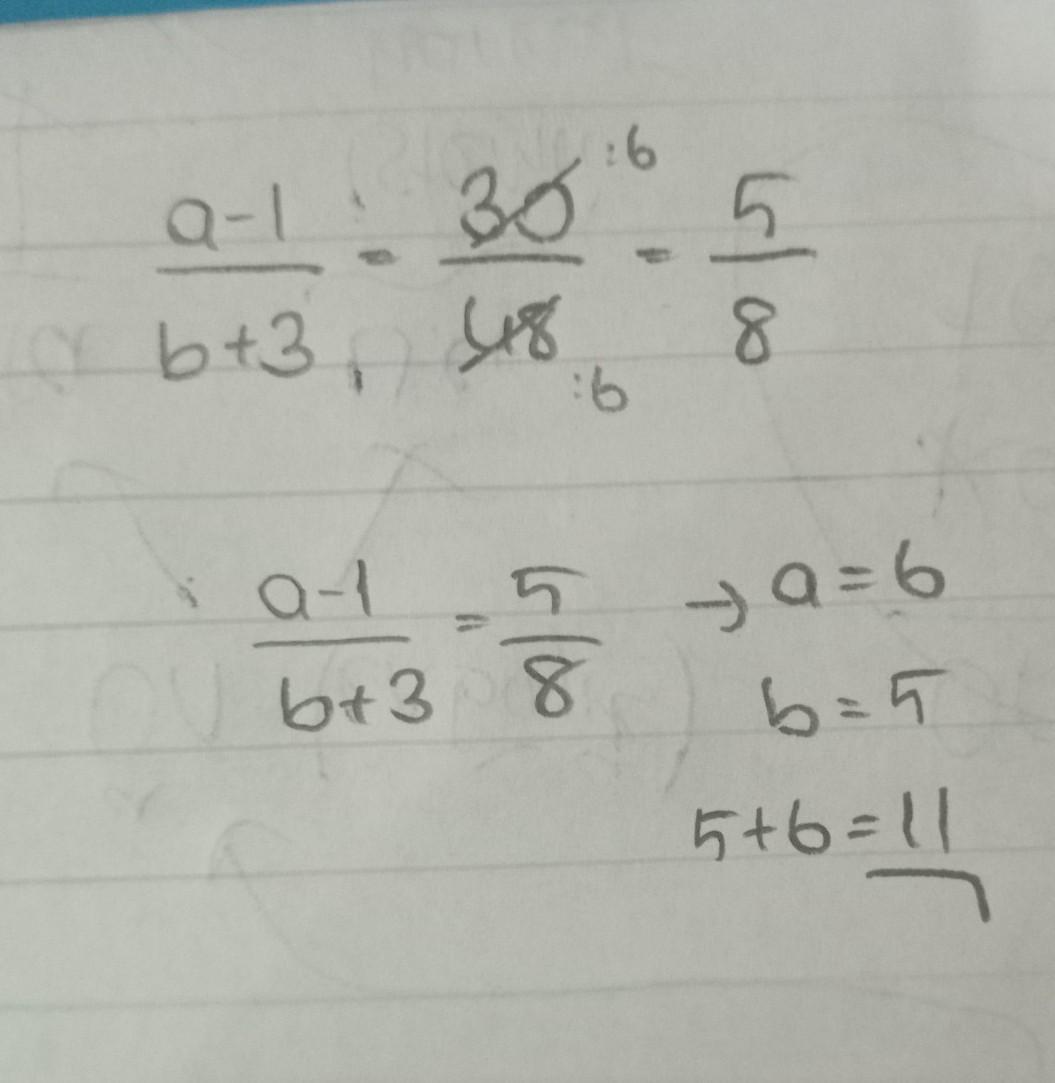 a-1/b+3 = 30:6/48:6 = 5/8
a-1/b+3 = 5/8 → a=6
b=5
5+6=11